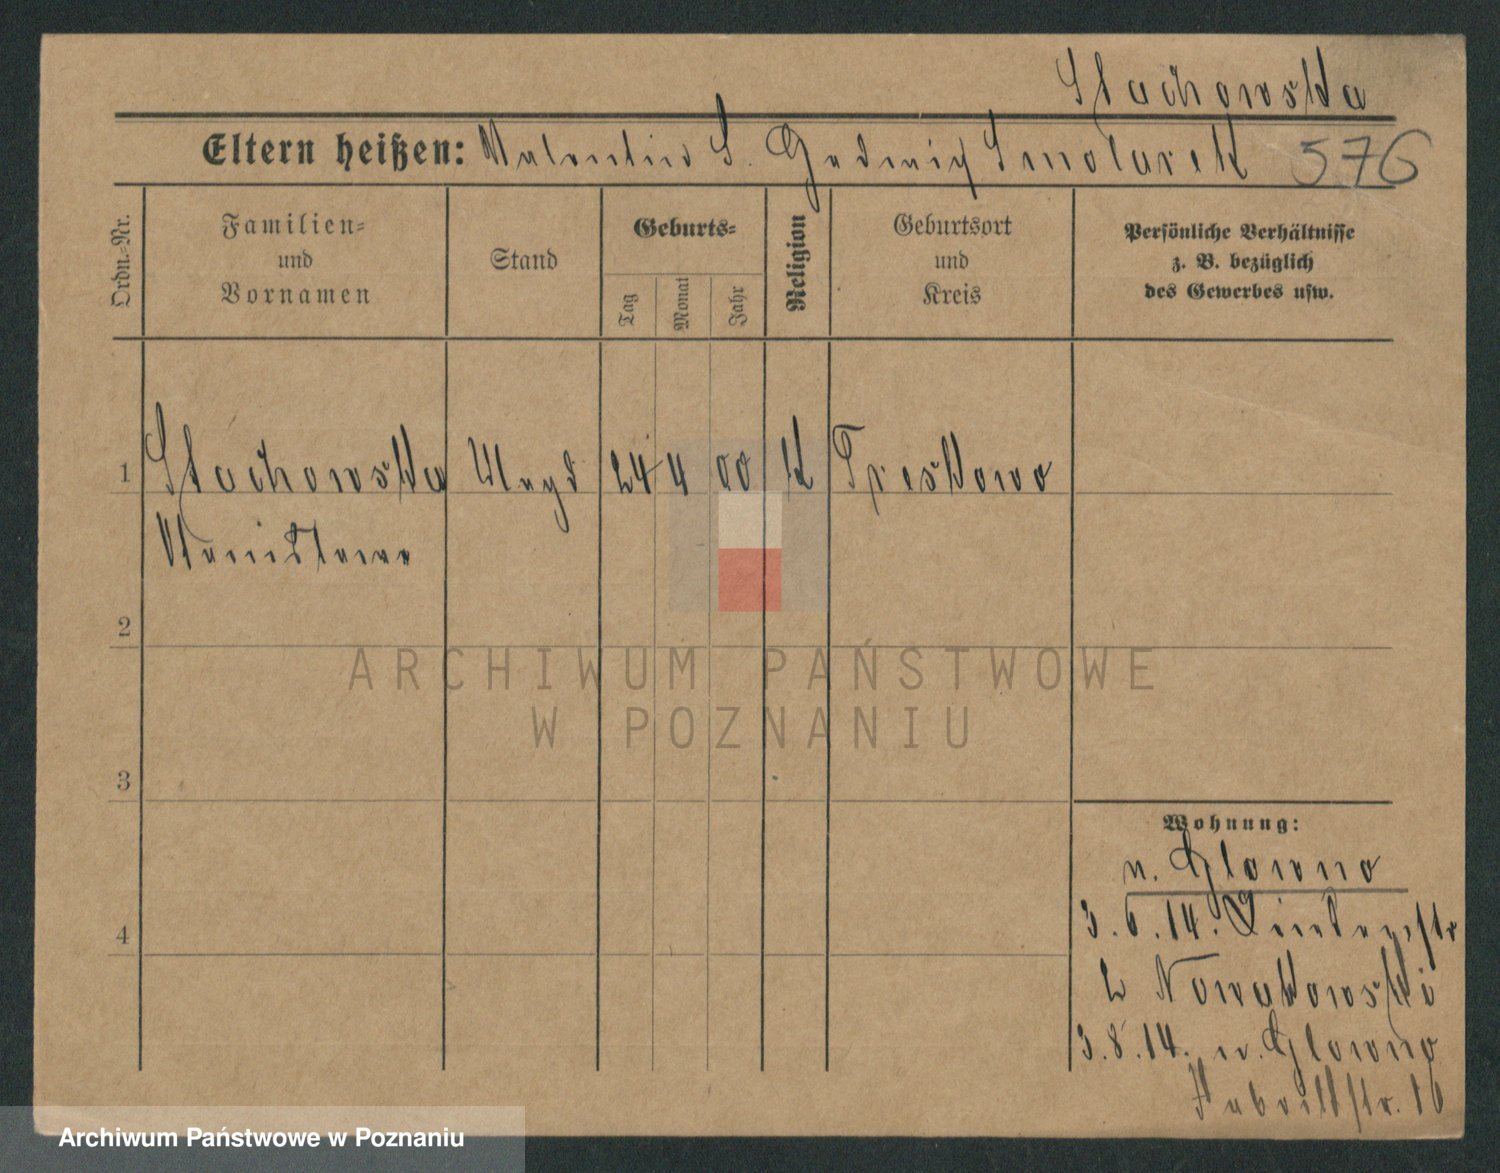 Stachowska
Eltern heißen: Valentin S. Hedwig Smolarek 576
Ordn.-Nr.
Familien-
und
Vornamen
Stand
Geburts-
Tag
Monat
Jahr
Religion
Geburtsort
und
Kreis
Persönliche Verhältnisse
z. B. bezüglich
des Gewerbes usw.
1 Stachowska Magd 24 4 00 K Treskowo
Stanislawa
2
3
4
Wohnung:
n. Glowno
3.6.14.
2 Nowakowski
3.8.14. n. Glowno
Fabrikstr. 16
ARCHIWUM PAŃSTWOWE
W POZNANIU
Archiwum Państwowe w Poznaniu